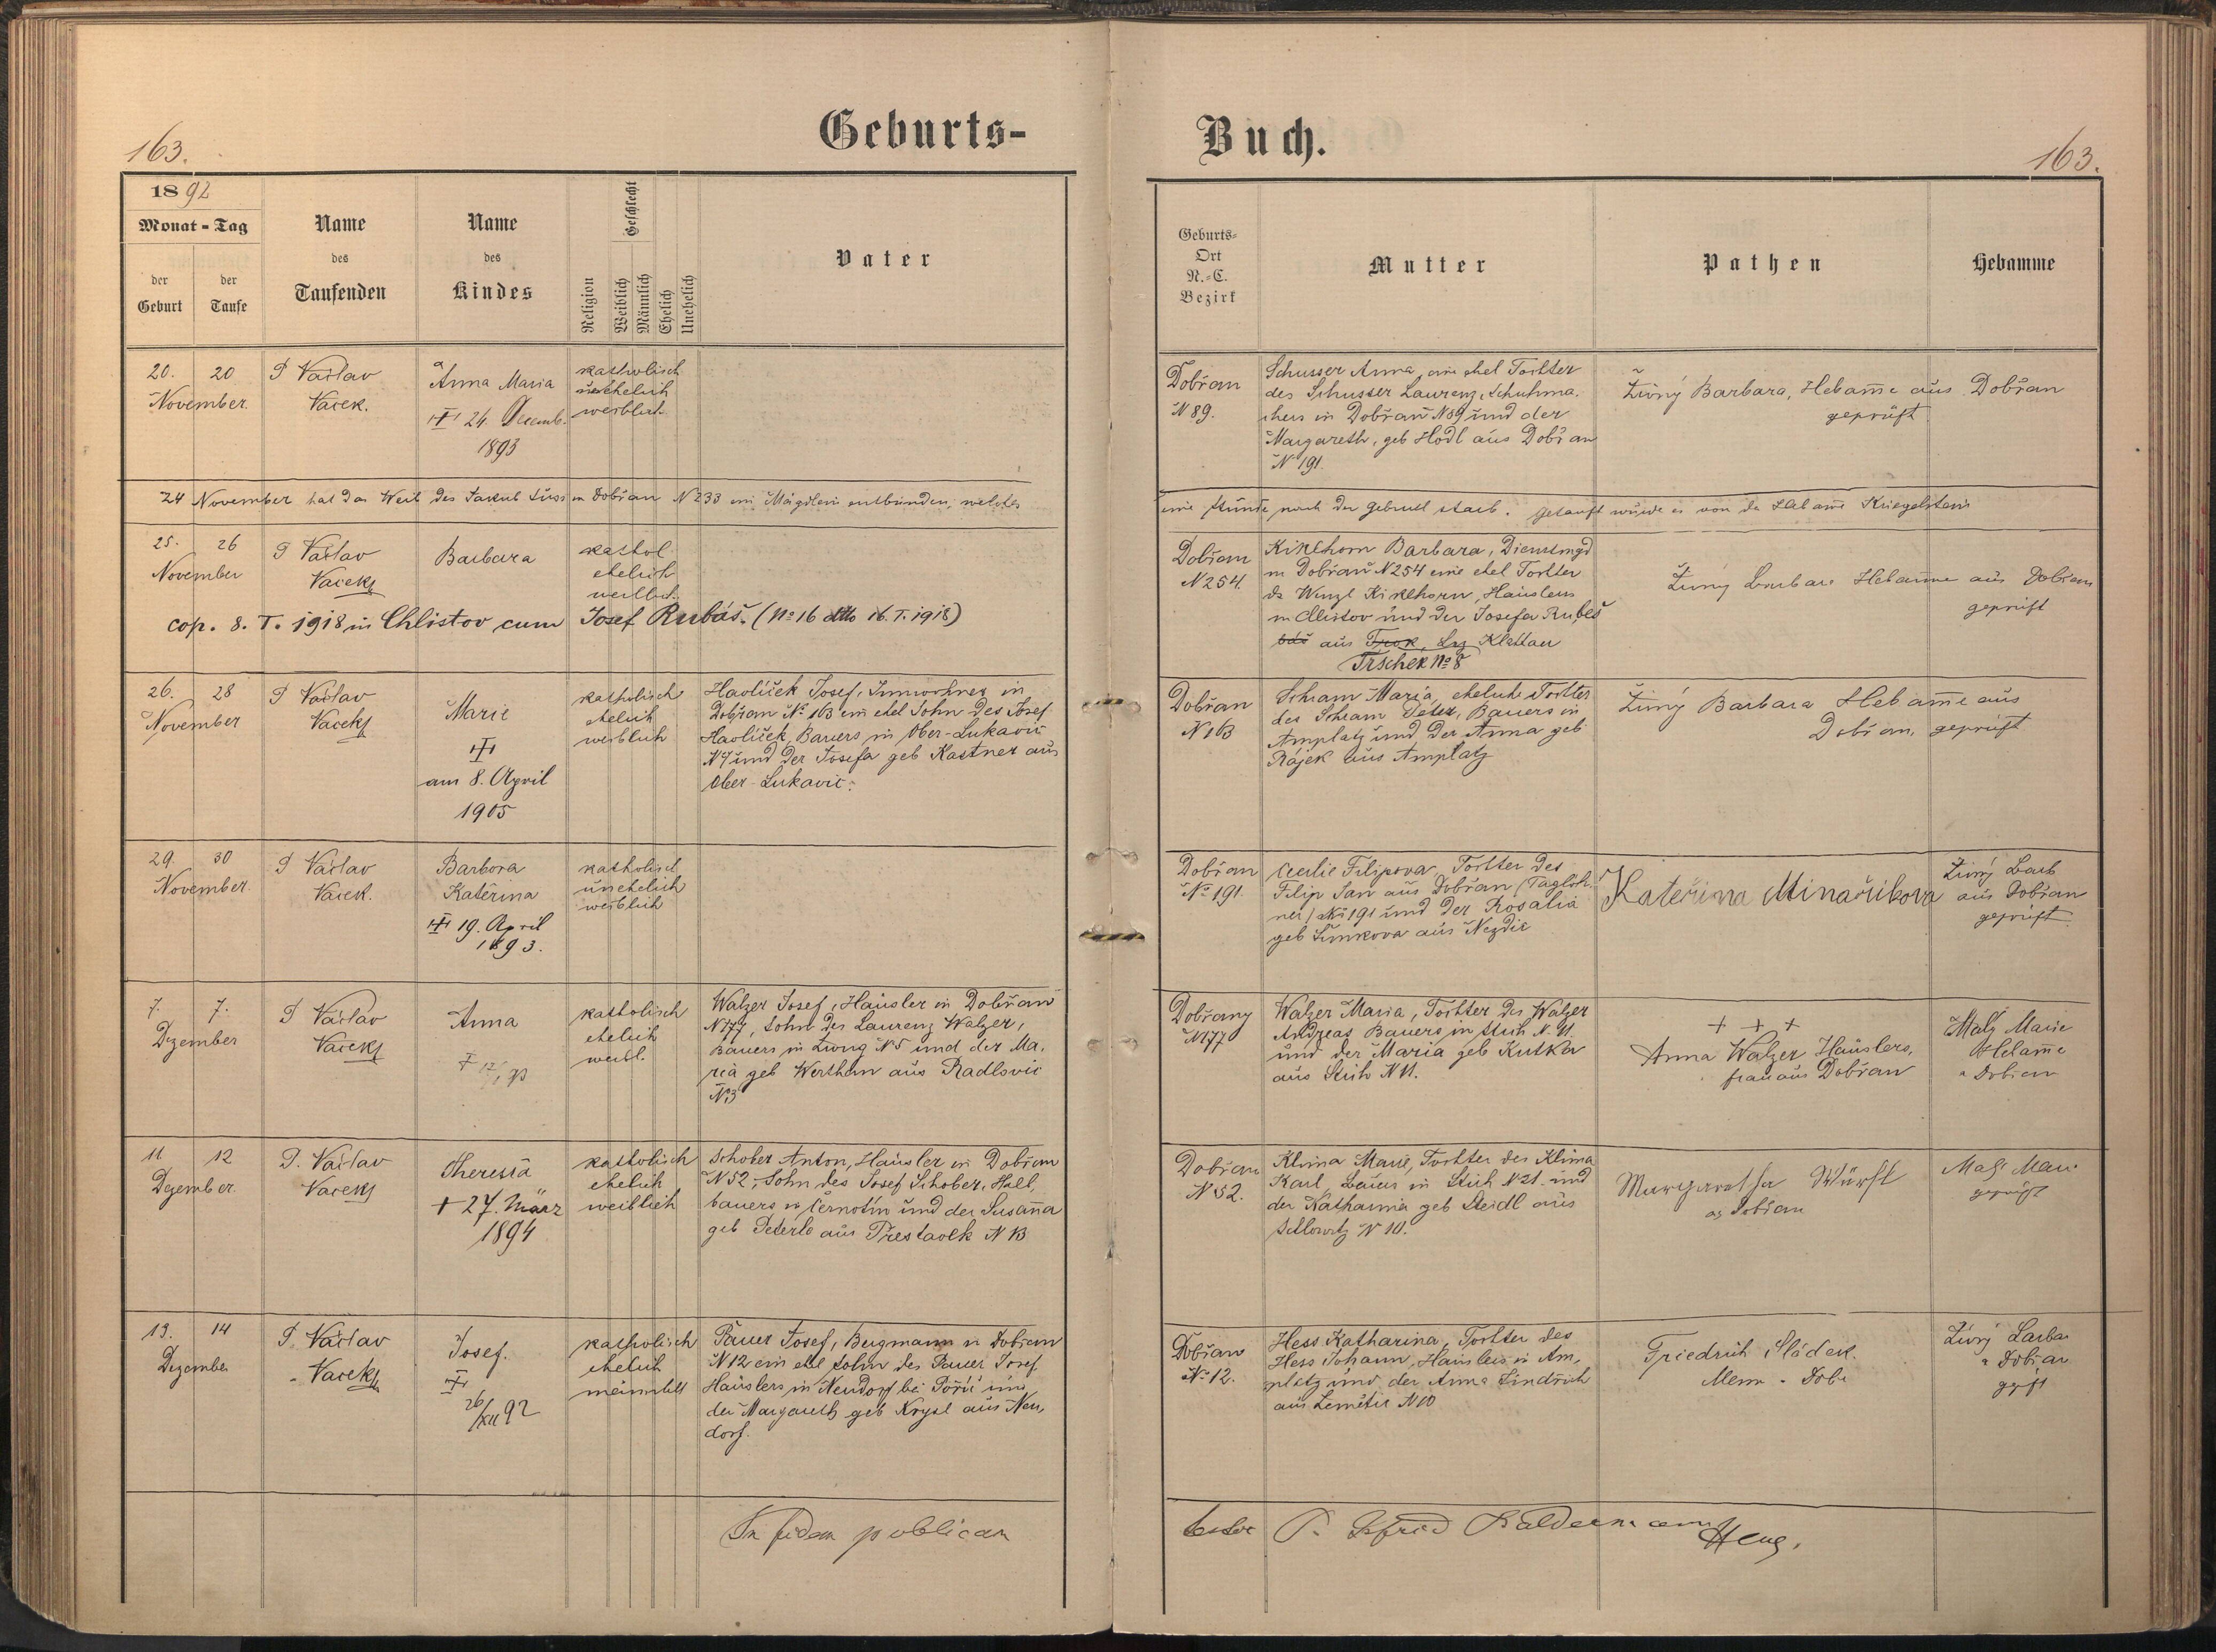 163.
Geburts-
Buch.
163.
1892
Monat - Tag
der Geburt
der Taufe
Name des Taufenden
Name des Kindes
Religion
Geschlecht
Weiblich
Männlich
Ehelich
Unehelich
Vater
Geburts-
Ort
N.-C.
Bezirk
Mutter
Pathen
Hebamme
20. 20
November
P Vaclav
Vacek.
Anna Maria
24. Decemb.
1893
katholisch
unehelich
weiblich
Dobřan
N 89.
Schusser Anna, eine ehel Tochter
des Schusser Laurenz, Schuhma-
chers in Dobřan N 89 und der
Margareth, geb Hodl aus Dobřan
N 191.
Živný Barbara, Hebamme aus Dobřan
geprüft
24 November hat das Weib des Jakub in Dobřan N 233 ein Mägdlein entbunden, welches
eine Stunde nach der Geburt starb. Getauft wurde es von der Hebamme
25. 26
November
P Vaclav
Vacek
Barbara
kathol
ehelich
weiblich
cop. 8. I. 1918 in Chlistov cum Josef Rubáš. (No 16 dtto 16. I. 1918)
Dobřan
N 254.
Kiklhorn Barbara, Dienstmgd
in Dobřan N 254 eine ehel Tochter
des Wenzl Kiklhorn, Häuslers
in Chlistov und der Josefa Rubeš
aus Klattau
Trschek No 8
Živný Barbara Hebamme aus Dobřan
geprüft
26. 28
November
P Vaclav
Vacek
Marie
am 8. April
1905
katholisch
ehelich
weiblich
Havlíček Josef, Inwohner in
Dobřan No 163 ein ehel Sohn des Josef
Havlíček, Bauers in Ober-Lukavic
N 7 und der Josefa geb Kastner aus
Ober-Lukavic.
Dobřan
N 163
Schram Maria, eheliche Tochter
des Schram Peter, Bauers in
Amplatz und der Anna geb
Rájek aus Amplatz
Živný Barbara Hebamme aus
Dobřan, geprüft
29. 30
November
P Vaclav
Vacek.
Barbora
Katěrina
19. April
1893.
katholisch
unehelich
weiblich
Dobřan
No 191.
Cecilie Filipova, Tochter des
Filip Jan aus Dobřan (Taglöh-
ner) No 191 und der Rosalia
geb Šimkova aus Nezdic
Kateřina Minaříkova
Živný Barb
aus Dobřan
geprüft
7. 7.
Dezember
P Vaclav
Vacek
Anna
katholisch
ehelich
weibl.
Walzer Josef, Häusler in Dobřan
N 177, Sohn des Laurenz Walzer,
Bauers in N 5 und der Ma-
ria geb Werthan aus Radlovic
N 3
Dobřany
N 177
Walzer Maria, Tochter des Walzer
Andreas Bauers in Stich N. 11
und der Maria geb Kutka
aus Stich N 11.
+ + +
Anna Walzer Häuslers-
frau aus Dobřan
Malý Marie
Hebamme
a Dobřan
11 12
Dezember.
P. Vaclav
Vacek
Theresia
+ 27. März
1894
katholisch
ehelich
weiblich
Schober Anton, Häusler in Dobřan
N 52, Sohn des Josef Schober, Halb-
bauers in Černotín und der Susanna
geb Peterle aus Přestavlk N 13
Dobřan
N 52.
Klima Marie, Tochter des Klima
Karl, Bauers in Stich N 21. und
der Katharina geb Steidl aus
N 10.
Margaretha Würfl
aus Dobřan
Malý Marie
geprüft
13. 14
Dezember
P. Vaclav
Vacek
Josef.
26/XII 92
katholisch
ehelich
männlich
Pauer Josef, Bergmann in Dobřan
N 12 ein ehel Sohn des Pauer Josef
Häuslers in Neudorf bei Poříč und
der Margareth geb Krysl aus Neu-
dorf.
Dobřan
No 12.
Hess Katharina, Tochter des
Hess Johann, Häuslers in Am-
platz und der Anna Jindřich
aus Semětic N 10
Friedrich Sládek.
Živný Barbar
a Dobřan
geprüft
In fidem publicam
testor P.